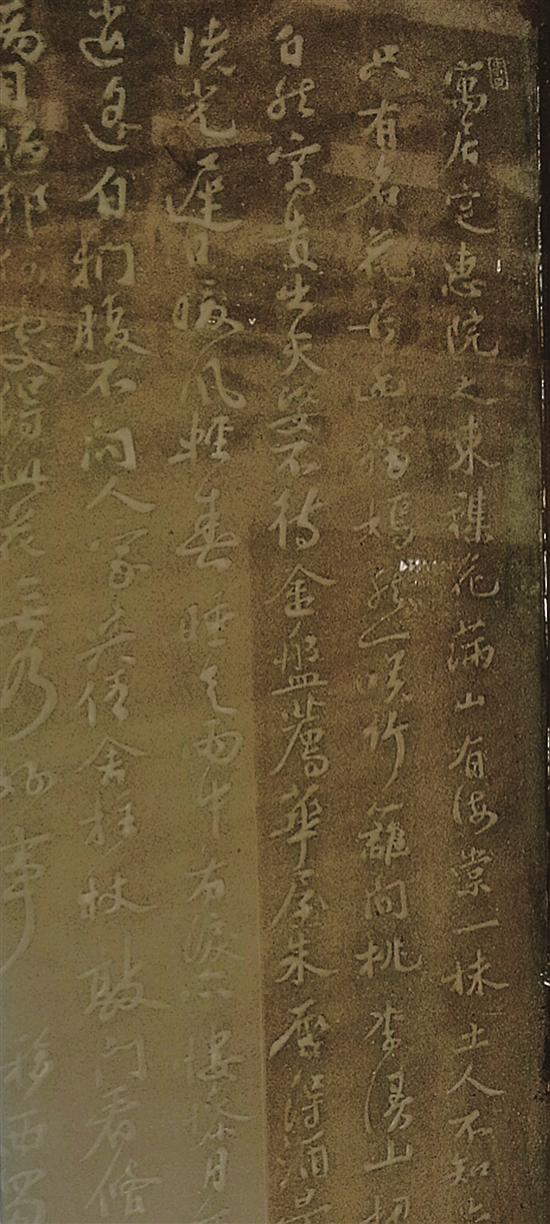 寓居定惠院之東雜花滿山有海棠一株土人不知
只有名花苦幽獨嫣然一笑竹籬間桃李漫山
自然富貴出天姿不待金盤薦華屋朱唇得酒
曉光遲日暖風輕春睡足雨中有淚亦悽愴月
逍遙自捫腹不問人家與僧舍拄杖敲門看脩
病目陋邦何處得此花無乃好事移西蜀